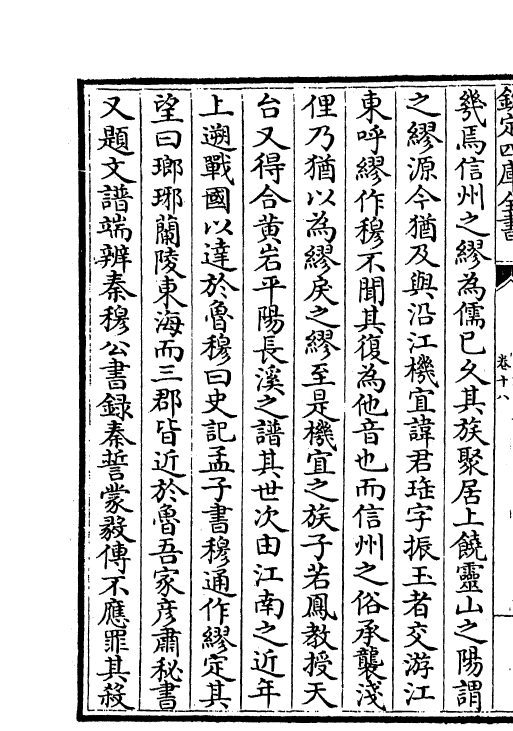 欽定四庫全書
卷十八
幾焉信州之繆為儒已久其族聚居上饒靈山之陽謂
之繆源今猶及與沿江機宜諱君珤字振玉者交游江
東呼繆作穆不聞其復為他音也而信州之俗承襲淺
俚乃猶以為繆戾之繆至是機宜之族子若鳳教授天
台又得合黄岩平陽長溪之譜其世次由江南之近年
上遡戰國以達於魯穆曰史記孟子書穆通作繆定其
望曰瑯琊蘭陵東海而三郡皆近於魯吾家彦肅秘書
又題文譜端辨秦穆公書録秦誓蒙毅傳不應罪其殺